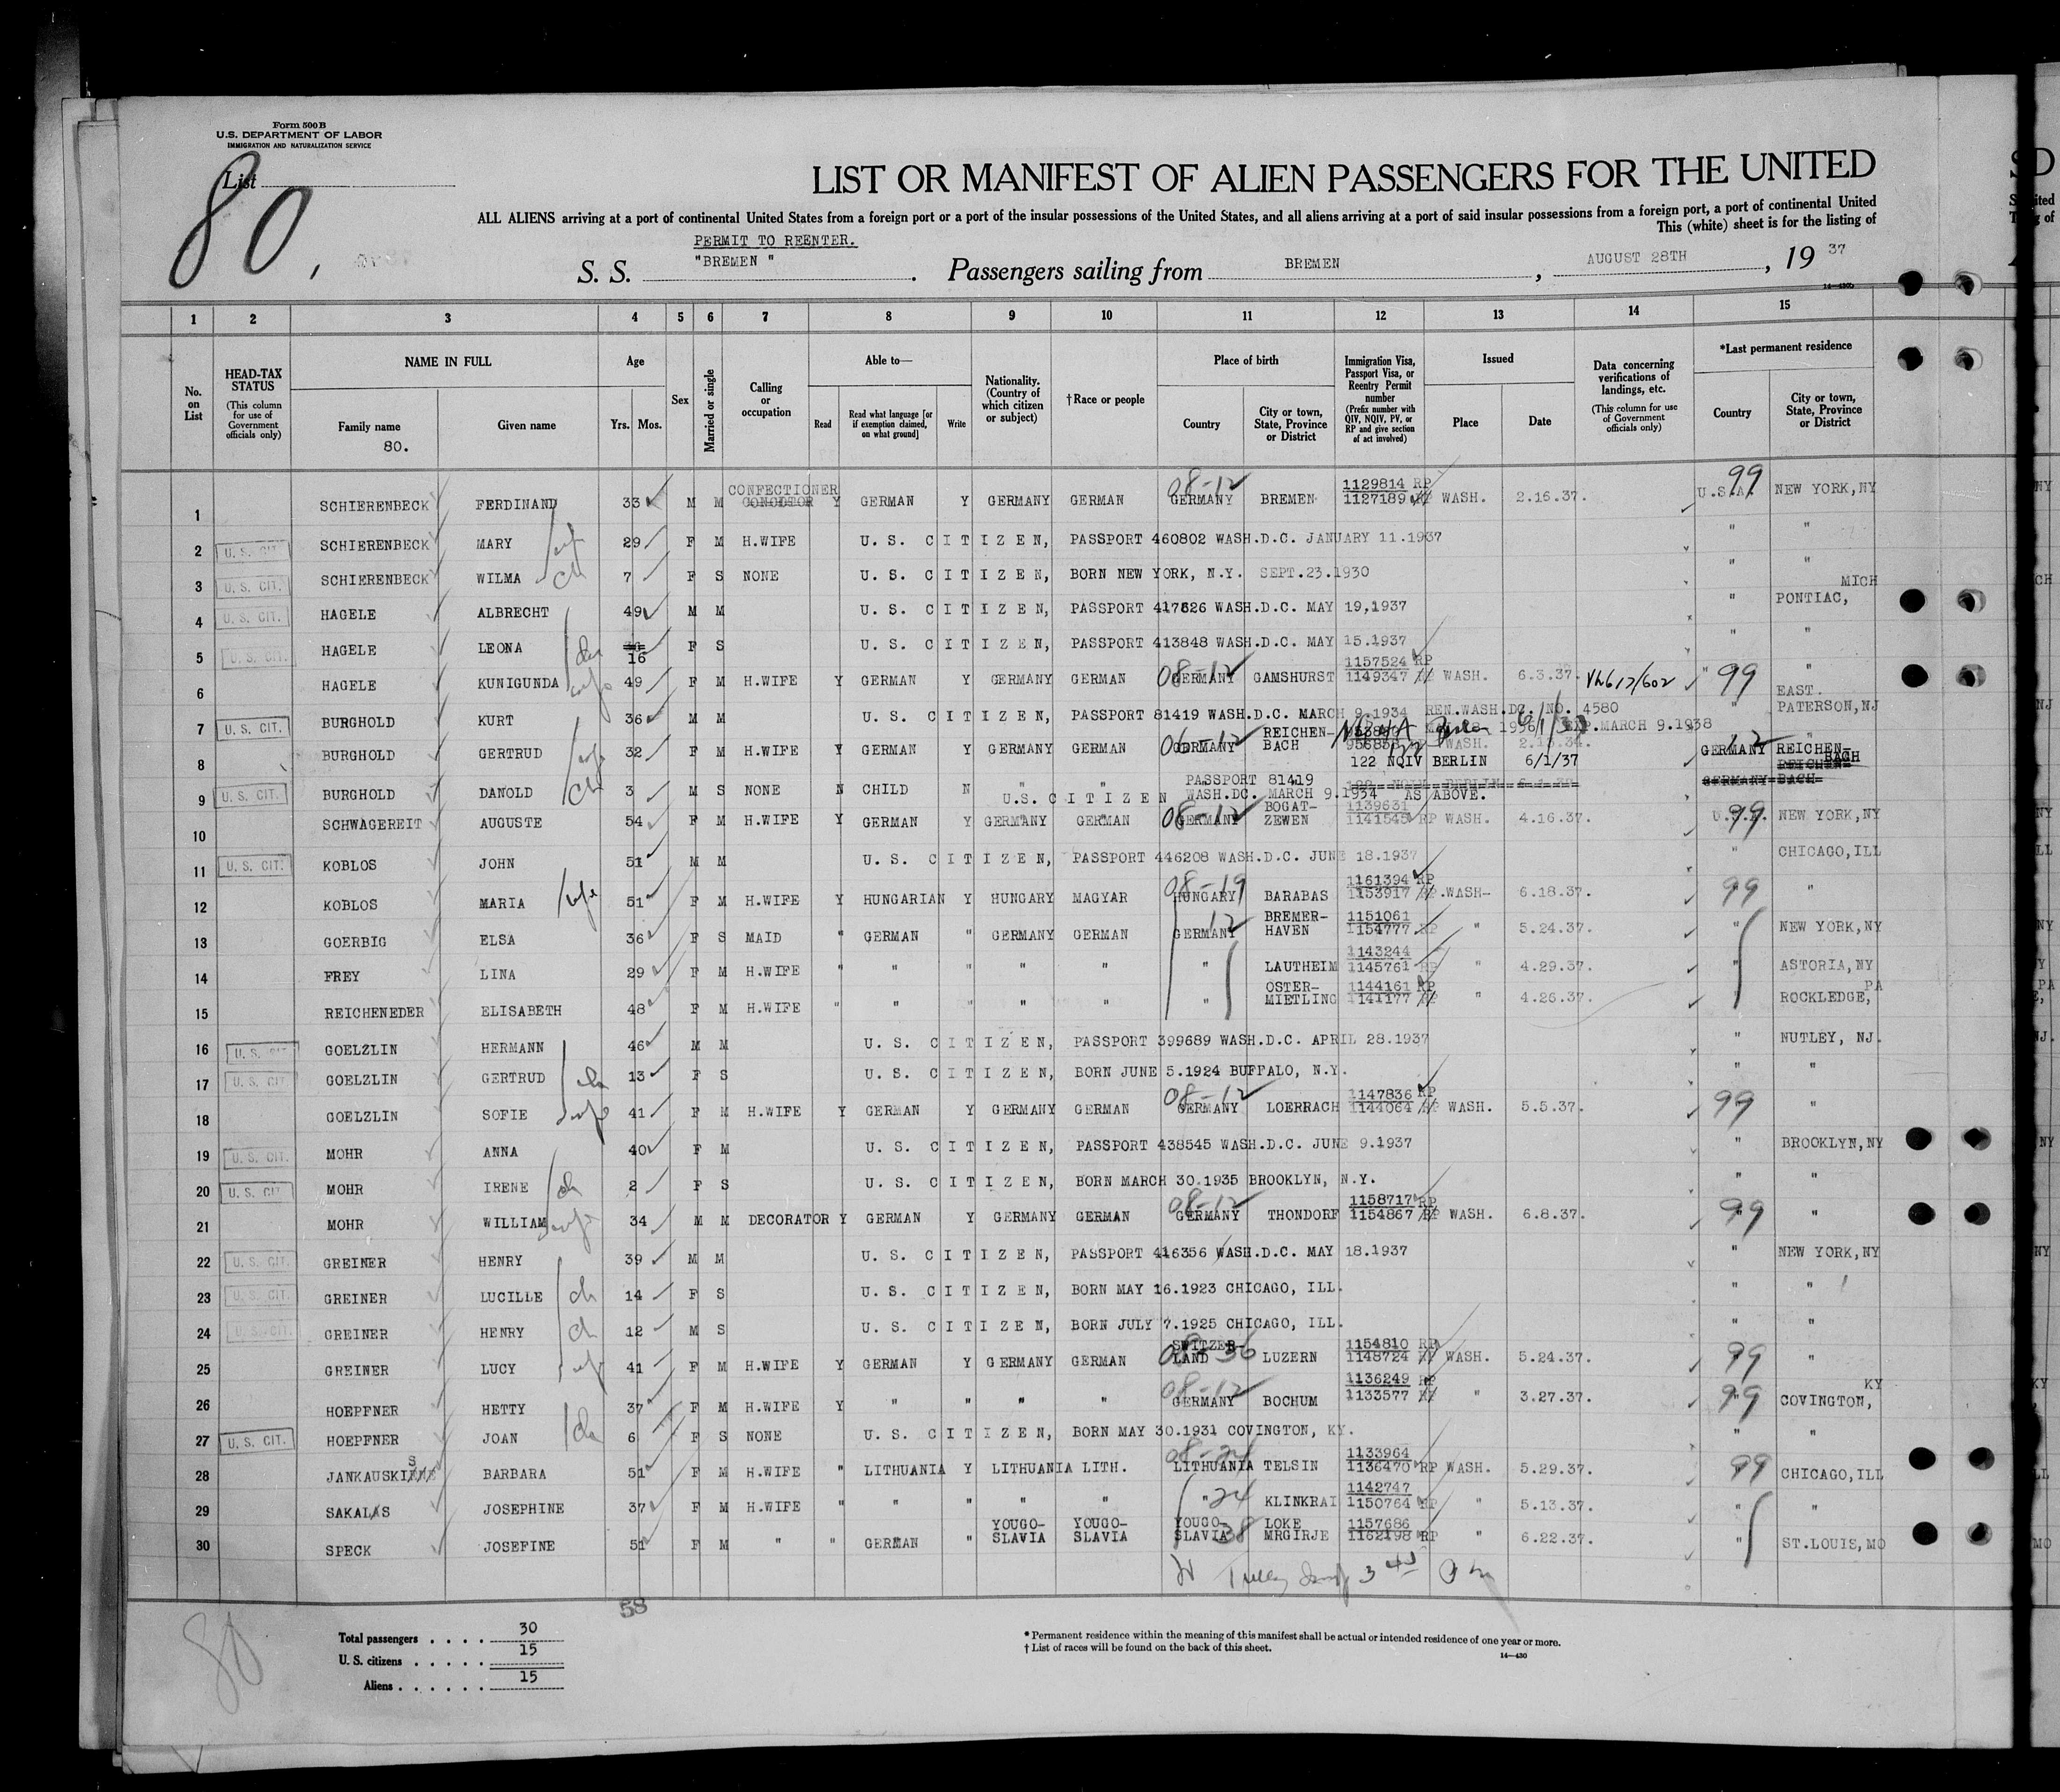 Form 500B
U.S. DEPARTMENT OF LABOR
IMMIGRATION AND NATURALIZATION SERVICE
List
80,
LIST OR MANIFEST OF ALIEN PASSENGERS FOR THE UNITED
ALL ALIENS arriving at a port of continental United States from a foreign port or a port of the insular possessions of the United States, and all aliens arriving at a port of said insular possessions from a foreign port, a port of continental United
This (white) sheet is for the listing of
PERMIT TO REENTER.
S. S. "BREMEN ". Passengers sailing from BREMEN, AUGUST 28TH, 19 37
1 2 3 4 5 6 7 8 9 10 11 12 13 14 15
No. on List
HEAD-TAX STATUS (This column for use of Government officials only)
NAME IN FULL Family name Given name
80.
Age Yrs. Mos.
Sex
Married or single
Calling or occupation
Able to— Read Read what language [or if exemption claimed, on what ground] Write
Nationality. (Country of which citizen or subject)
†Race or people
Place of birth Country City or town, State, Province or District
Immigration Visa, Passport Visa, or Reentry Permit number (Prefix number with QIV, NQIV, PV, or RP and give section of act involved)
Issued Place Date
Data concerning verifications of landings, etc. (This column for use of Government officials only)
*Last permanent residence Country City or town, State, Province or District
1 SCHIERENBECK FERDINAND 33 M M CONFECTIONER Y GERMAN Y GERMANY GERMAN 08-12 GERMANY BREMEN 1129814 RP 1127189 WASH. 2.16.37. U.S.A. 99 NEW YORK,NY
2 U. S. CIT. SCHIERENBECK MARY wife 29 F M H.WIFE U. S. CITIZEN, PASSPORT 460802 WASH.D.C. JANUARY 11.1937 " "
3 U. S. CIT. SCHIERENBECK WILMA ch 7 F S NONE U. S. CITIZEN, BORN NEW YORK, N.Y. SEPT.23.1930 " "
4 U. S. CIT. HAGELE ALBRECHT 49 M M U. S. CITIZEN, PASSPORT 417626 WASH.D.C. MAY 19,1937 " PONTIAC, MICH
5 U. S. CIT. HAGELE LEONA 16 F S U. S. CITIZEN, PASSPORT 413848 WASH.D.C. MAY 15.1937 " "
6 HAGELE KUNIGUNDA wife 49 F M H.WIFE Y GERMAN Y GERMANY GERMAN 08-12 GERMANY GAMSHURST 1157524 RP 1149347 WASH. 6.3.37. " 99 "
7 U. S. CIT. BURGHOLD KURT 36 M M U. S. CITIZEN, PASSPORT 81419 WASH.D.C. MARCH 9.1934 REN.WASH.DC. NO. 4580 EXP.MARCH 9.1938 " EAST. PATERSON,NJ
8 BURGHOLD GERTRUD wife 32 F M H.WIFE Y GERMAN Y GERMANY GERMAN GERMANY REICHEN-BACH WASH. 122 NQIV BERLIN 6/1/37 GERMANY 12 REICHEN-BACH
9 U. S. CIT. BURGHOLD DANOLD ch 3 M S NONE N CHILD N " " U.S. CITIZEN PASSPORT 81419 WASH.DC. MARCH 9.1934 AS ABOVE.
10 SCHWAGEREIT AUGUSTE 54 F M H.WIFE Y GERMAN Y GERMANY GERMAN 08-12 GERMANY BOGAT-ZEWEN 1139631 1141545 RP WASH. 4.16.37. U.S.A. 99 NEW YORK,NY
11 U. S. CIT. KOBLOS JOHN 51 M M U. S. CITIZEN, PASSPORT 446208 WASH.D.C. JUNE 18.1937 " CHICAGO,ILL
12 KOBLOS MARIA wife 51 F M H.WIFE Y HUNGARIAN Y HUNGARY MAGYAR 08-19 HUNGARY BARABAS 1161394 RP 1153917 RP.WASH- 6.18.37. 99 "
13 GOERBIG ELSA 36 F S MAID " GERMAN " GERMANY GERMAN 12 GERMANY BREMER-HAVEN 1151061 1154777 RP " 5.24.37. " NEW YORK,NY
14 FREY LINA 29 F M H.WIFE " " " " " " LAUTHEIM 1143244 1145761 RP " 4.29.37. " ASTORIA,NY
15 REICHENEDER ELISABETH 48 F M H.WIFE " " " " " " OSTER-MIETLING 1144161 RP 1141177 RP " 4.26.37. " ROCKLEDGE, PA
16 U. S. CIT. GOELZLIN HERMANN 46 M M U. S. CITIZEN, PASSPORT 399689 WASH.D.C. APRIL 28.1937 " NUTLEY, NJ.
17 U. S. CIT. GOELZLIN GERTRUD ch 13 F S U. S. CITIZEN, BORN JUNE 5.1924 BUFFALO, N.Y. " "
18 GOELZLIN SOFIE wife 41 F M H.WIFE Y GERMAN Y GERMANY GERMAN 08-12 GERMANY LOERRACH 1147836 RP 1144064 RP WASH. 5.5.37. 99 "
19 U. S. CIT. MOHR ANNA 40 F M U. S. CITIZEN, PASSPORT 438545 WASH.D.C. JUNE 9.1937 " BROOKLYN,NY
20 U. S. CIT. MOHR IRENE ch 2 F S U. S. CITIZEN, BORN MARCH 30.1935 BROOKLYN, N.Y. " "
21 MOHR WILLIAM 34 M M DECORATOR Y GERMAN Y GERMANY GERMAN 08-12 GERMANY THONDORF 1158717 RP 1154867 RP WASH. 6.8.37. 99 "
22 U. S. CIT. GREINER HENRY 39 M M U. S. CITIZEN, PASSPORT 416356 WASH.D.C. MAY 18.1937 " NEW YORK,NY
23 U. S. CIT. GREINER LUCILLE ch 14 F S U. S. CITIZEN, BORN MAY 16.1923 CHICAGO, ILL. " "
24 U. S. CIT. GREINER HENRY ch 12 M S U. S. CITIZEN, BORN JULY 7.1925 CHICAGO, ILL. " "
25 GREINER LUCY wife 41 F M H.WIFE Y GERMAN Y GERMANY GERMAN 08-36 SWITZER-LAND LUZERN 1154810 RP 1148724 WASH. 5.24.37. 99 "
26 HOEPFNER HETTY 37 F M H.WIFE Y " " " " 08-12 GERMANY BOCHUM 1136249 RP 1133577 " 3.27.37. 99 COVINGTON, KY
27 U. S. CIT. HOEPFNER JOAN ch 6 F S NONE U. S. CITIZEN, BORN MAY 30.1931 COVINGTON, KY. " "
28 JANKAUSKIS BARBARA 51 F M H.WIFE " LITHUANIA Y LITHUANIA LITH. 08-24 LITHUANIA TELSIN 1133964 1136470 RP WASH. 5.29.37. 99 CHICAGO,ILL
29 SAKALAS JOSEPHINE 37 F M H.WIFE " " " " " " 24 KLINKRAI 1142747 1150764 RP " 5.13.37. " "
30 SPECK JOSEFINE 51 F M " " GERMAN " YOUGO-SLAVIA YOUGO-SLAVIA YOUGO-SLAVIA 38 LOKE MRGIRJE 1157686 1162198 RP " 6.22.37. " ST.LOUIS,MO
58
80
Total passengers . . . . 30
U. S. citizens . . . . . 15
Aliens . . . . . . 15
* Permanent residence within the meaning of this manifest shall be actual or intended residence of one year or more.
† List of races will be found on the back of this sheet.
14—430